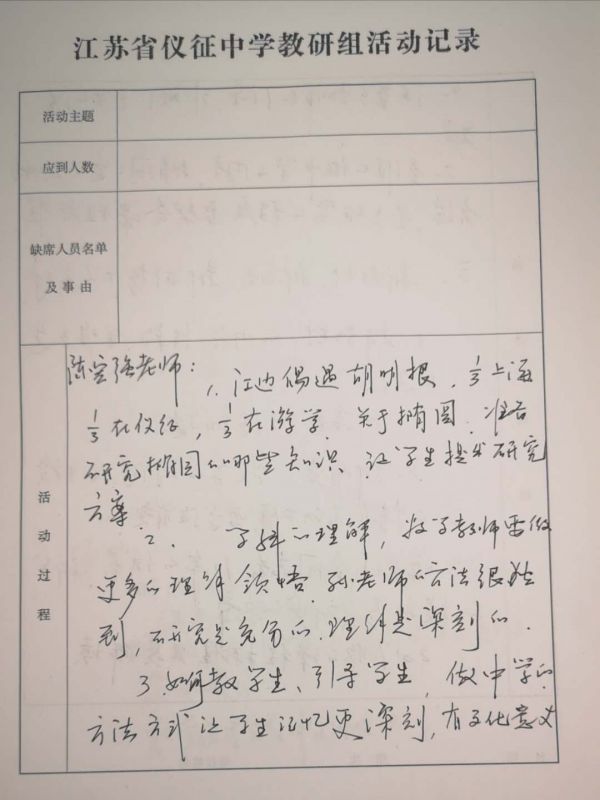 江苏省仪征中学教研组活动记录
活动主题
应到人数
缺席人员名单
及事由
活动过程
陈宏强老师：1. 江边偶遇胡明根，⅓上海
⅓在仪征，⅓在游学. 关于椭圆. 准备
研究椭圆的哪些知识 让学生提出研究
方案
2. 学科的理解，数学教师需做
更多的理解领悟. 孙老师的方法很独
到，研究是充分的. 理解是深刻的.
3 如何教学生、引导学生，做中学的
方法方式让学生记忆更深刻，有文化意义